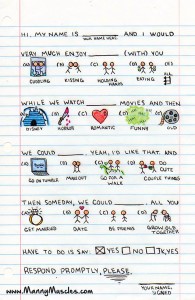 HI, MY NAME IS ________ AND I WOULD
YOUR NAME HERE
VERY MUCH ENJOY ________ (WITH) YOU
(A) (B) (C) (D)
CUDDLING KISSING HOLDING HANDS EATING
WHILE WE WATCH ________ MOVIES AND THEN
DISNEY HORROR ROMANTIC FUNNY OLD
WE COULD ________. YEAH, I'D LIKE THAT. AND
(A) (B) (C) (D)
GO ON TUMBLR MAKE OUT GO FOR A WALK COUPLE THINGS
THEN SOMEDAY, WE COULD ________. ALL YOU
(A) (B) (C) (D)
GET MARRIED DATE BE FRIENDS GROW OLD TOGETHER
HAVE TO DO IS SAY: YES NO
RESPOND PROMPTLY, PLEASE.
YOUR NAME,
SIGNED
www.MannyMuscles.com